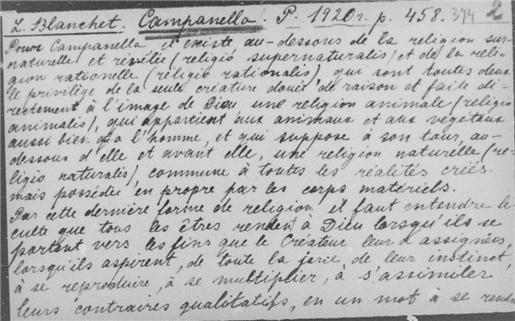 L. Blanchet. Campanella. P. 1920г. p. 458. 374 2
Pour Campanella il existe au-dessous de la religion sur-
naturelle et révélée (religio supernaturalis) et de la reli-
gion rationelle (religio rationalis), qui sont toutes deux
le privilège de la seule créature douée de raison et faite di-
rectement à l'image de Dieu une religion animale (religio
animalis), qui appartient aux animaux et aux végétaux
aussi bien qu'à l'homme, et qui suppose à son tour, au-
dessous d'elle et avant elle, une religion naturelle (re-
ligio naturalis), commune à toutes les réalités créés.
mais possédée en propre par les corps matériels.
Par cette dernière forme de religion il faut entendre le
culte que tous les êtres rendent à Dieu lorsqu'ils se
portent vers les fins que le Créateur leur a assignées,
lorsqu'ils aspirent, de toute la force, de leur instinct,
à se reproduire, à se multiplier, à s'assimiler
leurs contraires qualitatifs, en un mot à se rend